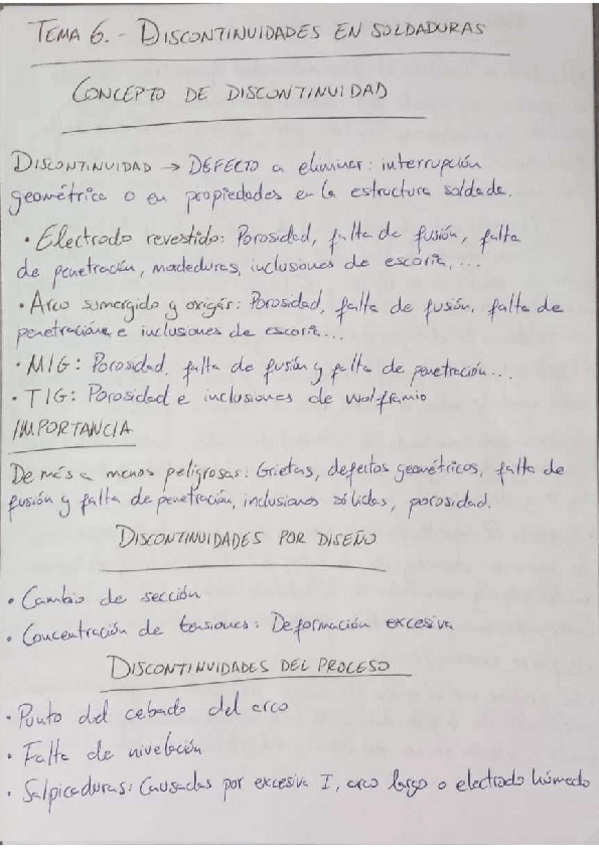 TEMA 6.- DISCONTINUIDADES EN SOLDADURAS
CONCEPTO DE DISCONTINUIDAD
DISCONTINUIDAD → DEFECTO a eliminar: interrupción
geométrica o en propiedades en la estructura soldada.
• Electrodo revestido: Porosidad, falta de fusión, falta
de penetración, mordeduras, inclusiones de escoria,...
• Arco sumergido y oxigás: Porosidad, falta de fusión, falta de
penetración e inclusiones de escoria...
• MIG: Porosidad, falta de fusión y falta de penetración...
• TIG: Porosidad e inclusiones de wolframio
IMPORTANCIA
De más a menos peligrosas: Grietas, defectos geométricos, falta de
fusión y falta de penetración, inclusiones sólidas, porosidad.
DISCONTINUIDADES POR DISEÑO
• Cambio de sección
• Concentración de tensiones: Deformación excesiva
DISCONTINUIDADES DEL PROCESO
• Punto del cebado del arco
• Falta de nivelación
• Salpicaduras: Causadas por excesiva I, arco largo o electrodo húmedo